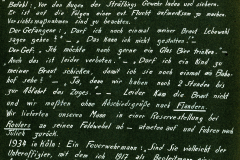 Befehl: Vor den Augen des Sträflings Gewehr laden und sichern.
Er ist auf die Folgen einer ev. Flucht aufmerksam zu machen.
Vorsichtsmaßnahmen sind zu beachten."
Der Gefangene: „Darf ich noch einmal meiner Braut Lebewohl
sagen gehen?" – „Das kann ich nicht gestatten." –
Der Gef.: „Ich möchte noch gerne ein Glas Bier trinken." –
Auch das ist leider verboten." – „Darf ich ein Bild zu
meiner Braut schicken, damit ich sie noch einmal am Bahn-
hof sehe?" – „Ja, denn wir haben noch 2 Stunden bis
zur Abfahrt des Zuges." – Leider kam die Braut nicht
und wir mußten ohne Abschiedsgrüße nach Flandern.
Wir lieferten unseren Mann in einer Reservestellung bei
an seinen Feldwebel ab – und fuhren nach
zurück.
1934 in Köln: Ein Feuerwehrmann: „Sind Sie vielleicht der
Unteroffizier, mit dem ich 1917 als Begleitmann einen